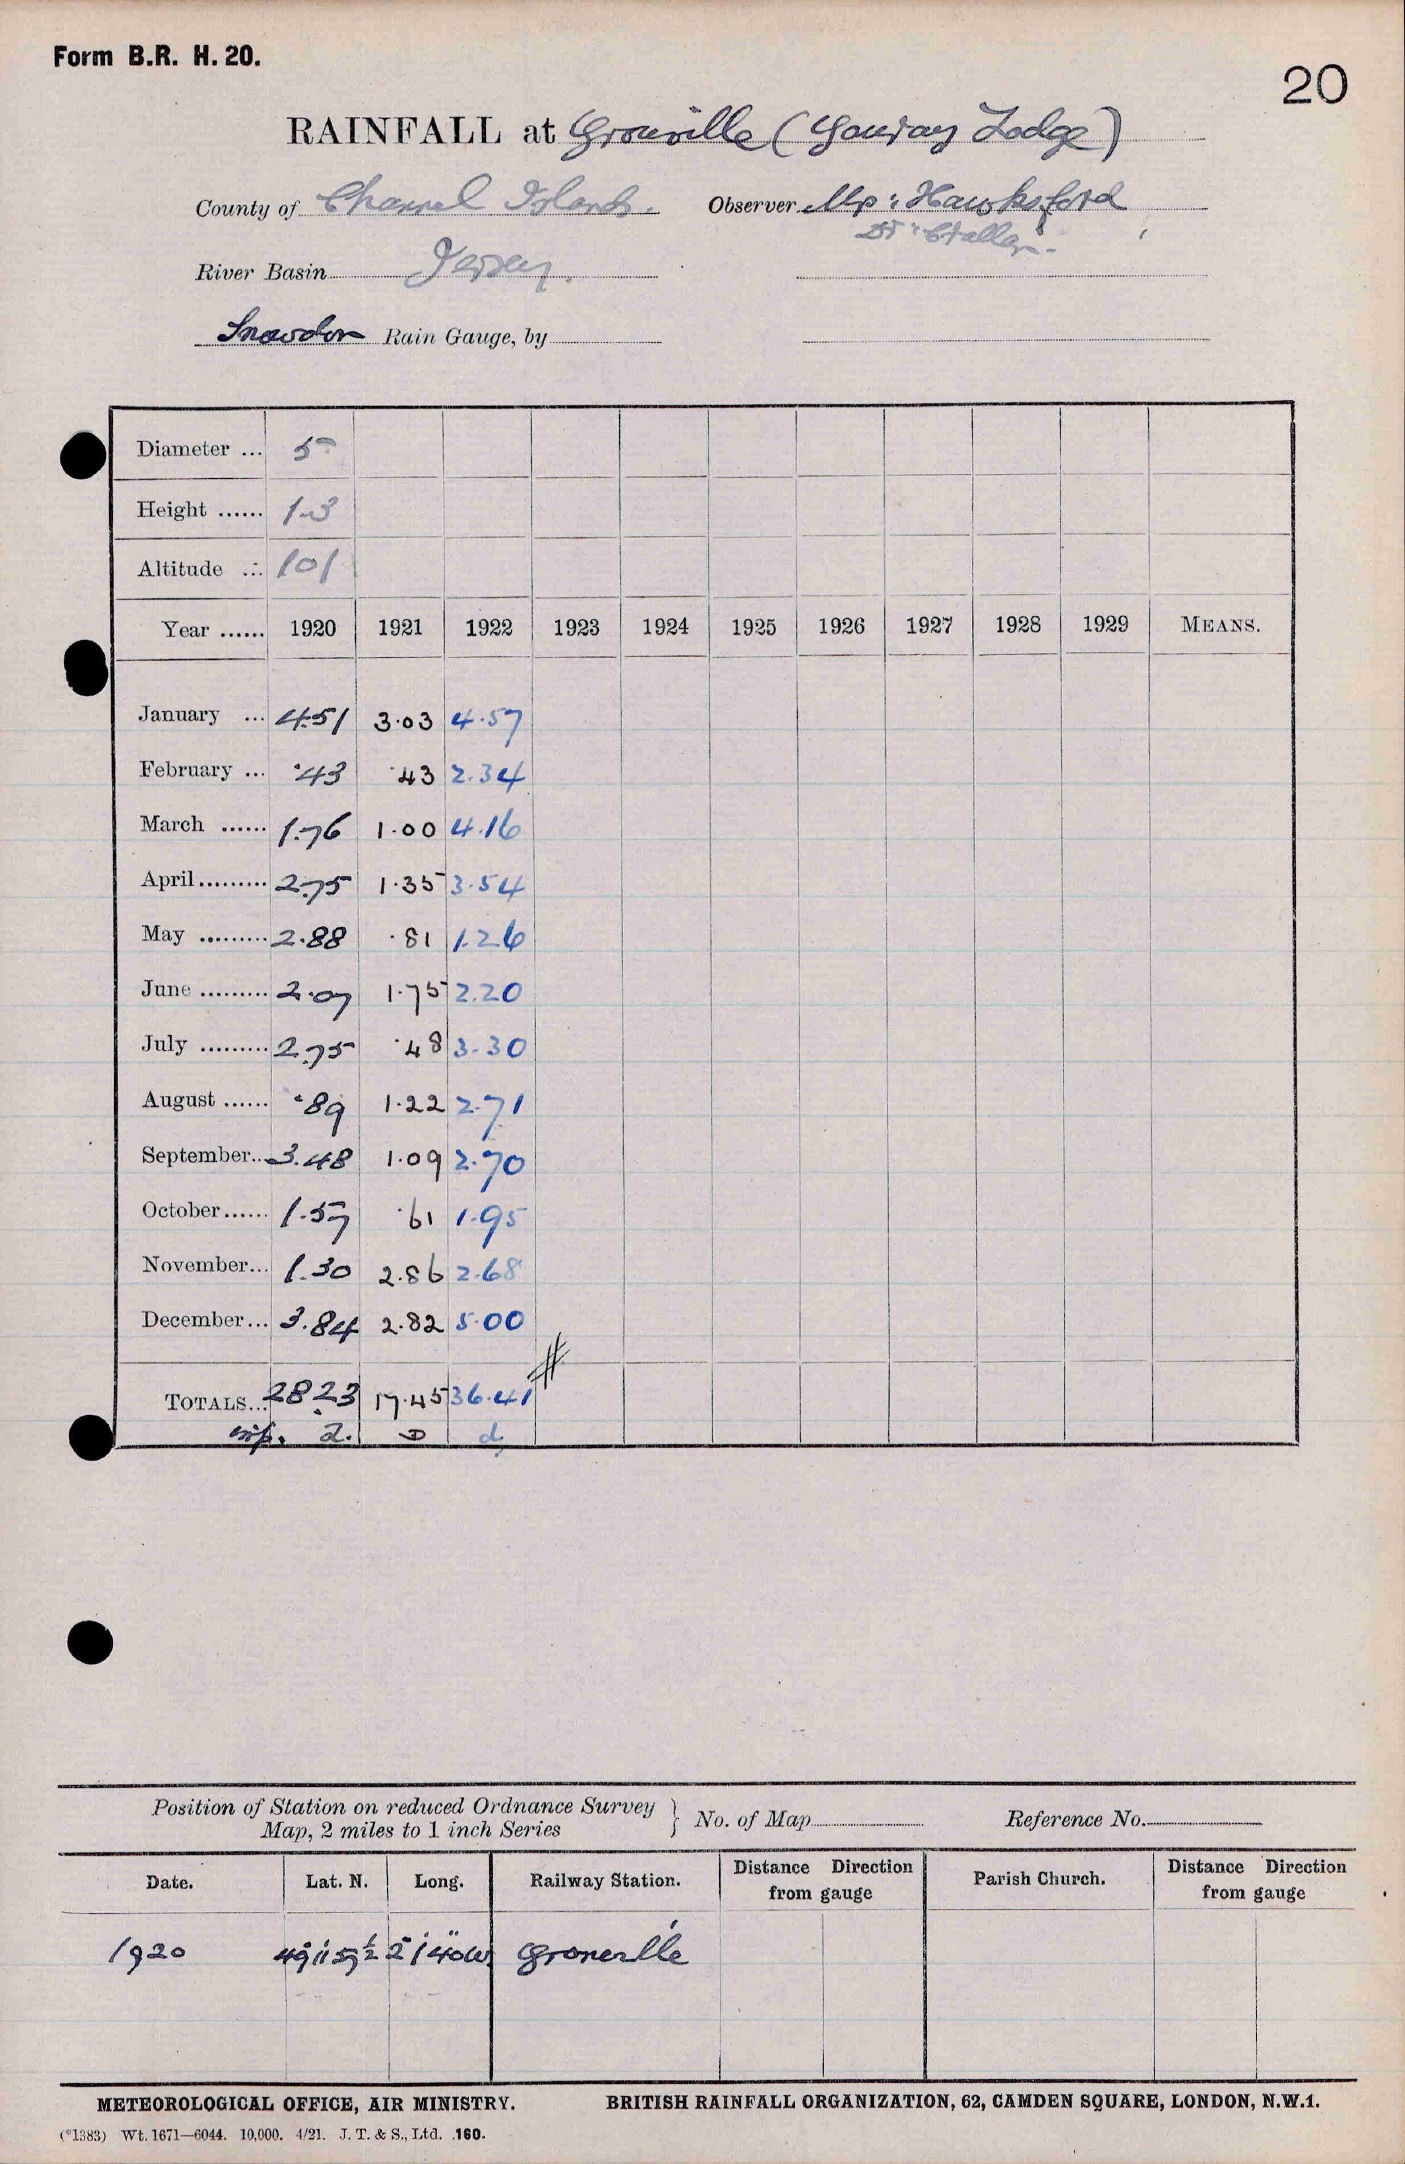 Form B.R. H. 20.
20
RAINFALL at Grouville (Gouray Lodge)
County of Channel Islands. Observer Mr: Hawksford
River Basin Jersey.
Snowdon Rain Gauge, by
Diameter ... 5
Height ...... 1.3
Altitude ... 101
Year ...... 1920 1921 1922 1923 1924 1925 1926 1927 1928 1929 MEANS.
January ... 4.51 3.03 4.57
February ... .43 .43 2.34
March ...... 1.76 1.00 4.16
April ......... 2.75 1.35 3.54
May ......... 2.88 .81 1.26
June ......... 2.07 1.75 2.20
July ......... 2.75 .48 3.30
August ...... .89 1.22 2.71
September... 3.48 1.09 2.70
October ...... 1.57 .61 1.95
November... 1.30 2.86 2.68
December... 3.84 2.82 5.00
TOTALS... 28.23 17.45 36.41
d. D d
Position of Station on reduced Ordnance Survey
Map, 2 miles to 1 inch Series } No. of Map Reference No.
Date. Lat. N. Long. Railway Station. Distance Direction from gauge Parish Church. Distance Direction from gauge
1920 49° 11' 59½ 2° 1' 40" W.
METEOROLOGICAL OFFICE, AIR MINISTRY. BRITISH RAINFALL ORGANIZATION, 62, CAMDEN SQUARE, LONDON, N.W.1.
(*1383) Wt. 1671—6044. 10,000. 4/21. J. T. & S., Ltd. .160.